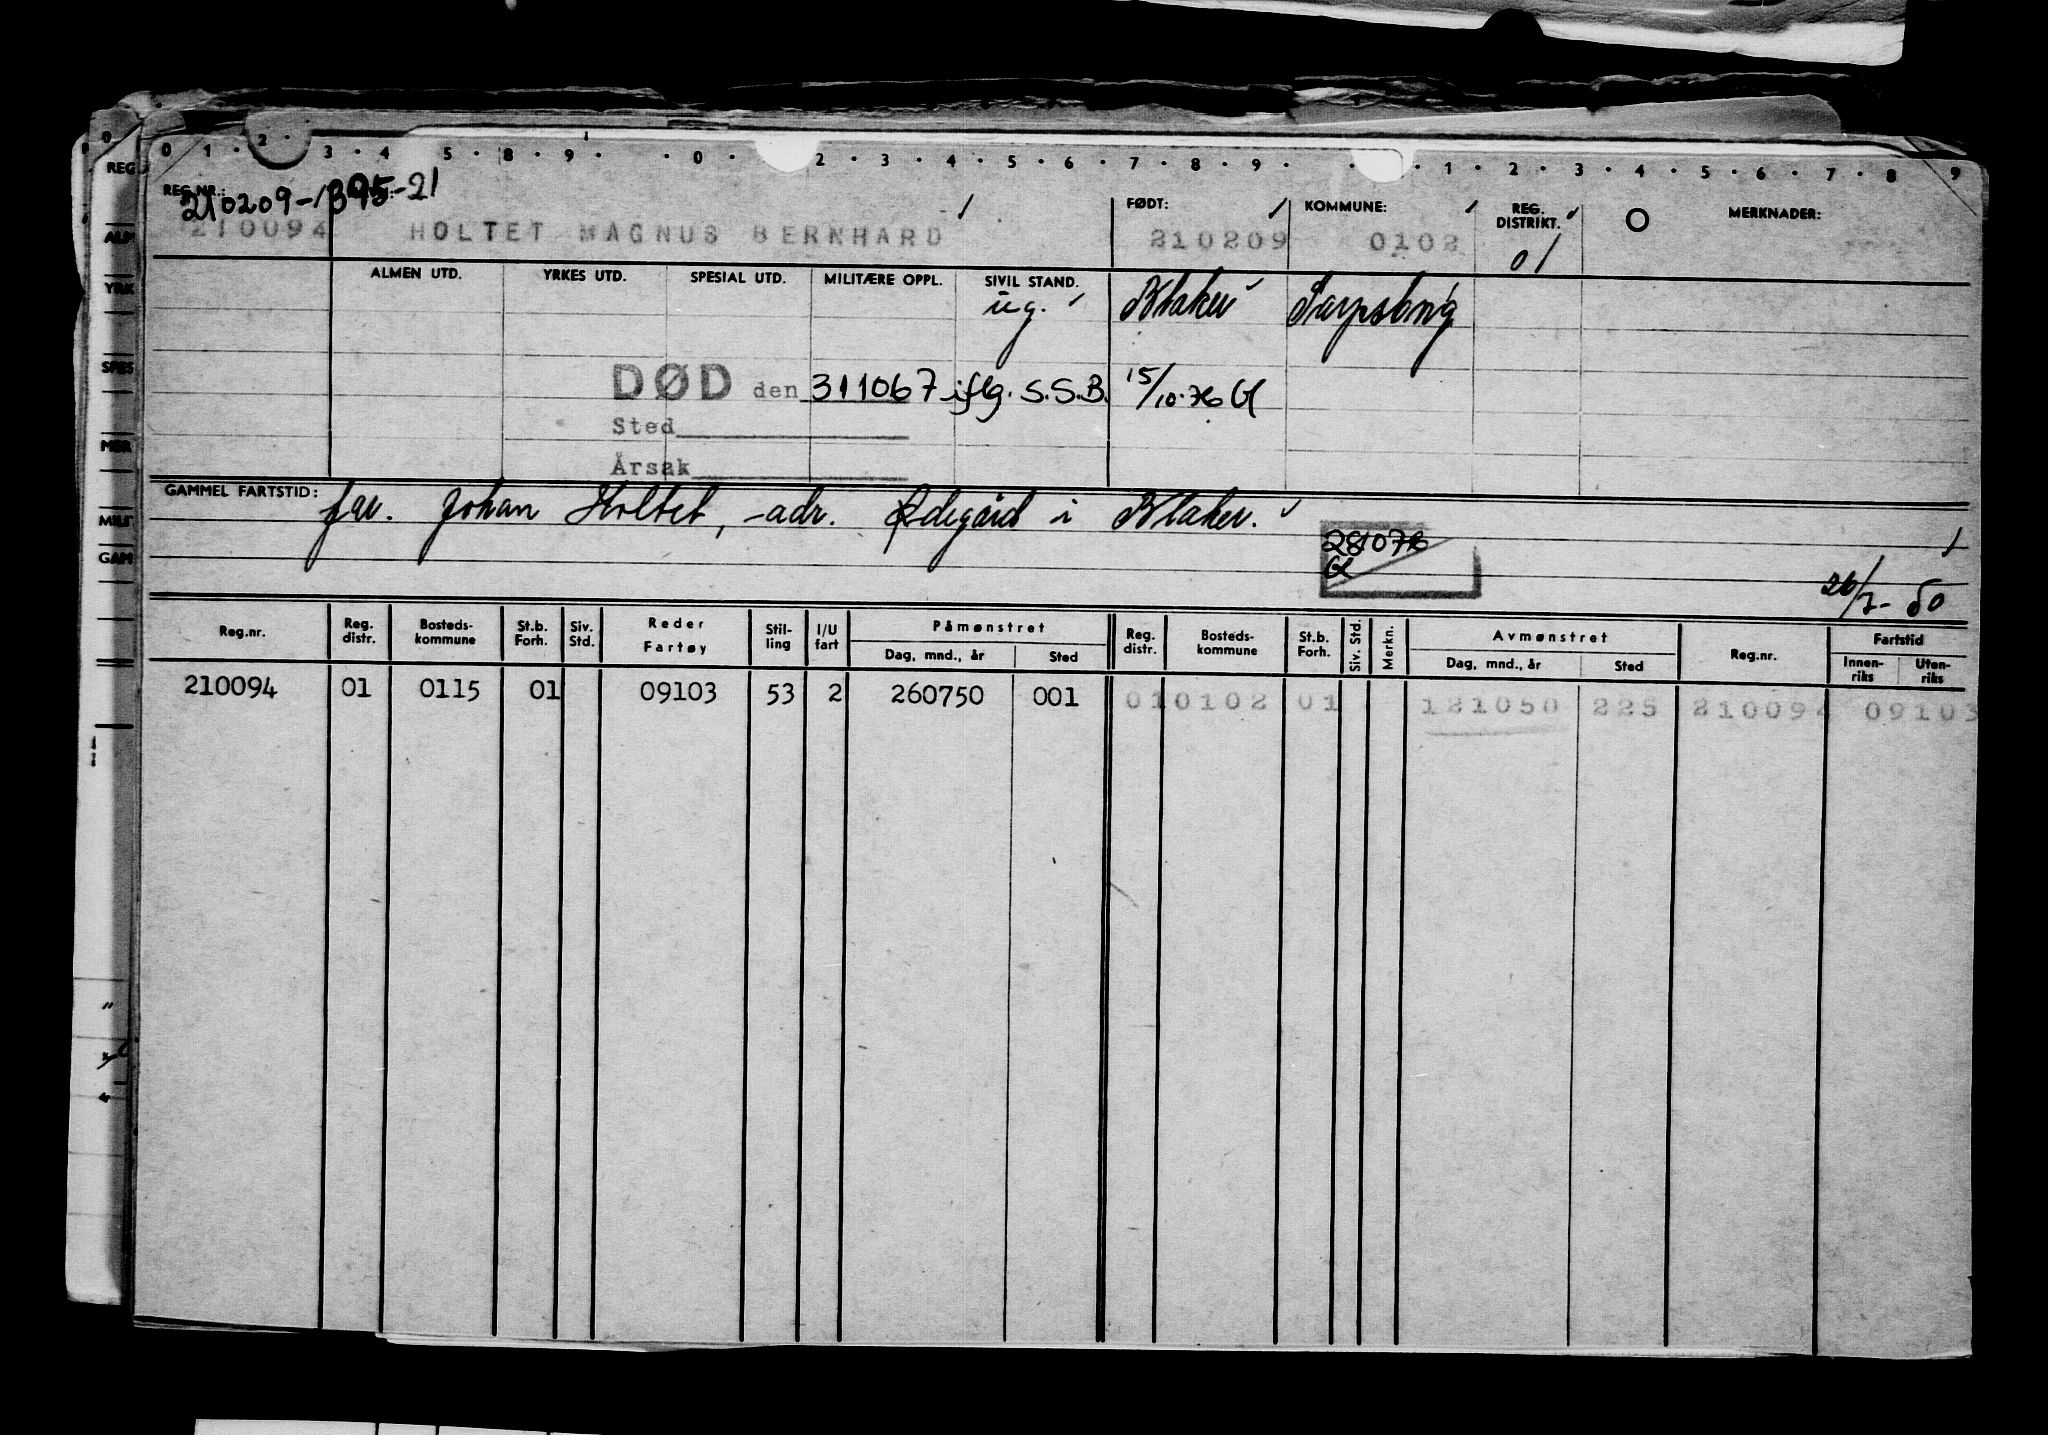 0 1 · 2 · 3 · 4 5 · 8 · 9 · · 0 · 2 · 3 · 4 · 5 · 6 · 7 · 8 · 9 · · 1 · 2 · 3 · 4 · 5 · 6 · 7 · 8 9
REG.NR.: FØDT: KOMMUNE: REG. DISTRIKT. O MERKNADER:
210209-1395-21
210094 HOLTET MAGNUS BERNHARD 210209 0102 01
ALMEN UTD. YRKES UTD. SPESIAL UTD. MILITÆRE OPPL. SIVIL STAND.
ug. Blaker Sarpsborg
DØD den 311067 iflg. S.S.B. 15/10.76 Gl
Sted
Årsak
GAMMEL FARTSTID: far. Johan Holtet, - adr. Ødegård i Blaker.
281076
Gl
26/7- 50
Reg.nr. Reg. distr. Bosteds-kommune St.b. Forh. Siv. Std. Reder Fartøy Stil-ling I/U fart Påmønstret Dag, mnd., år Sted Reg. distr. Bosteds-kommune St.b. Forh. Siv. Std. Merkn. Avmønstret Dag, mnd., år Sted Reg.nr. Fartstid Innen-riks Uten-riks
210094 01 0115 01 09103 53 2 260750 001 01 0102 01 121050 225 210094 09103
REG
ALM
YRK
SPES
MER
MILIT
GAM